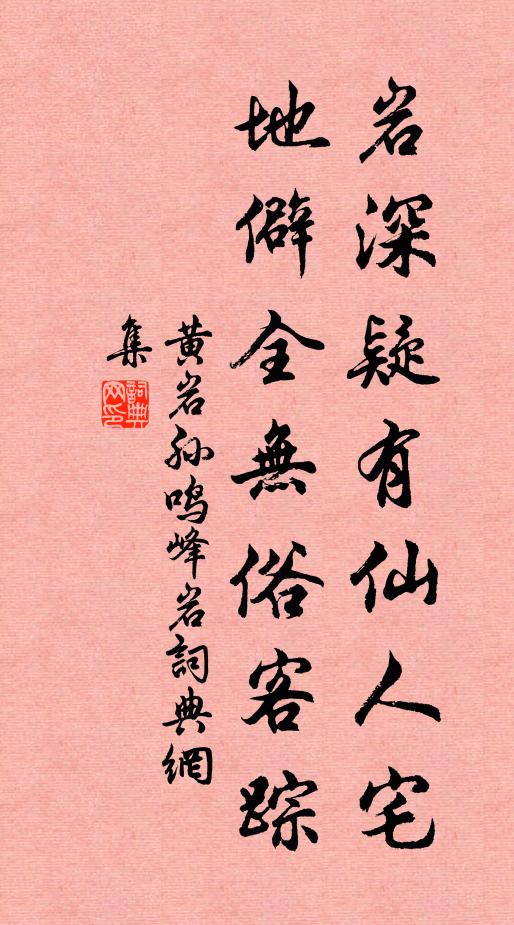 岩深疑有仙人宅
地僻全無俗客踪
黄岩孙鸣峰岩詞典網
集
詞典
网印